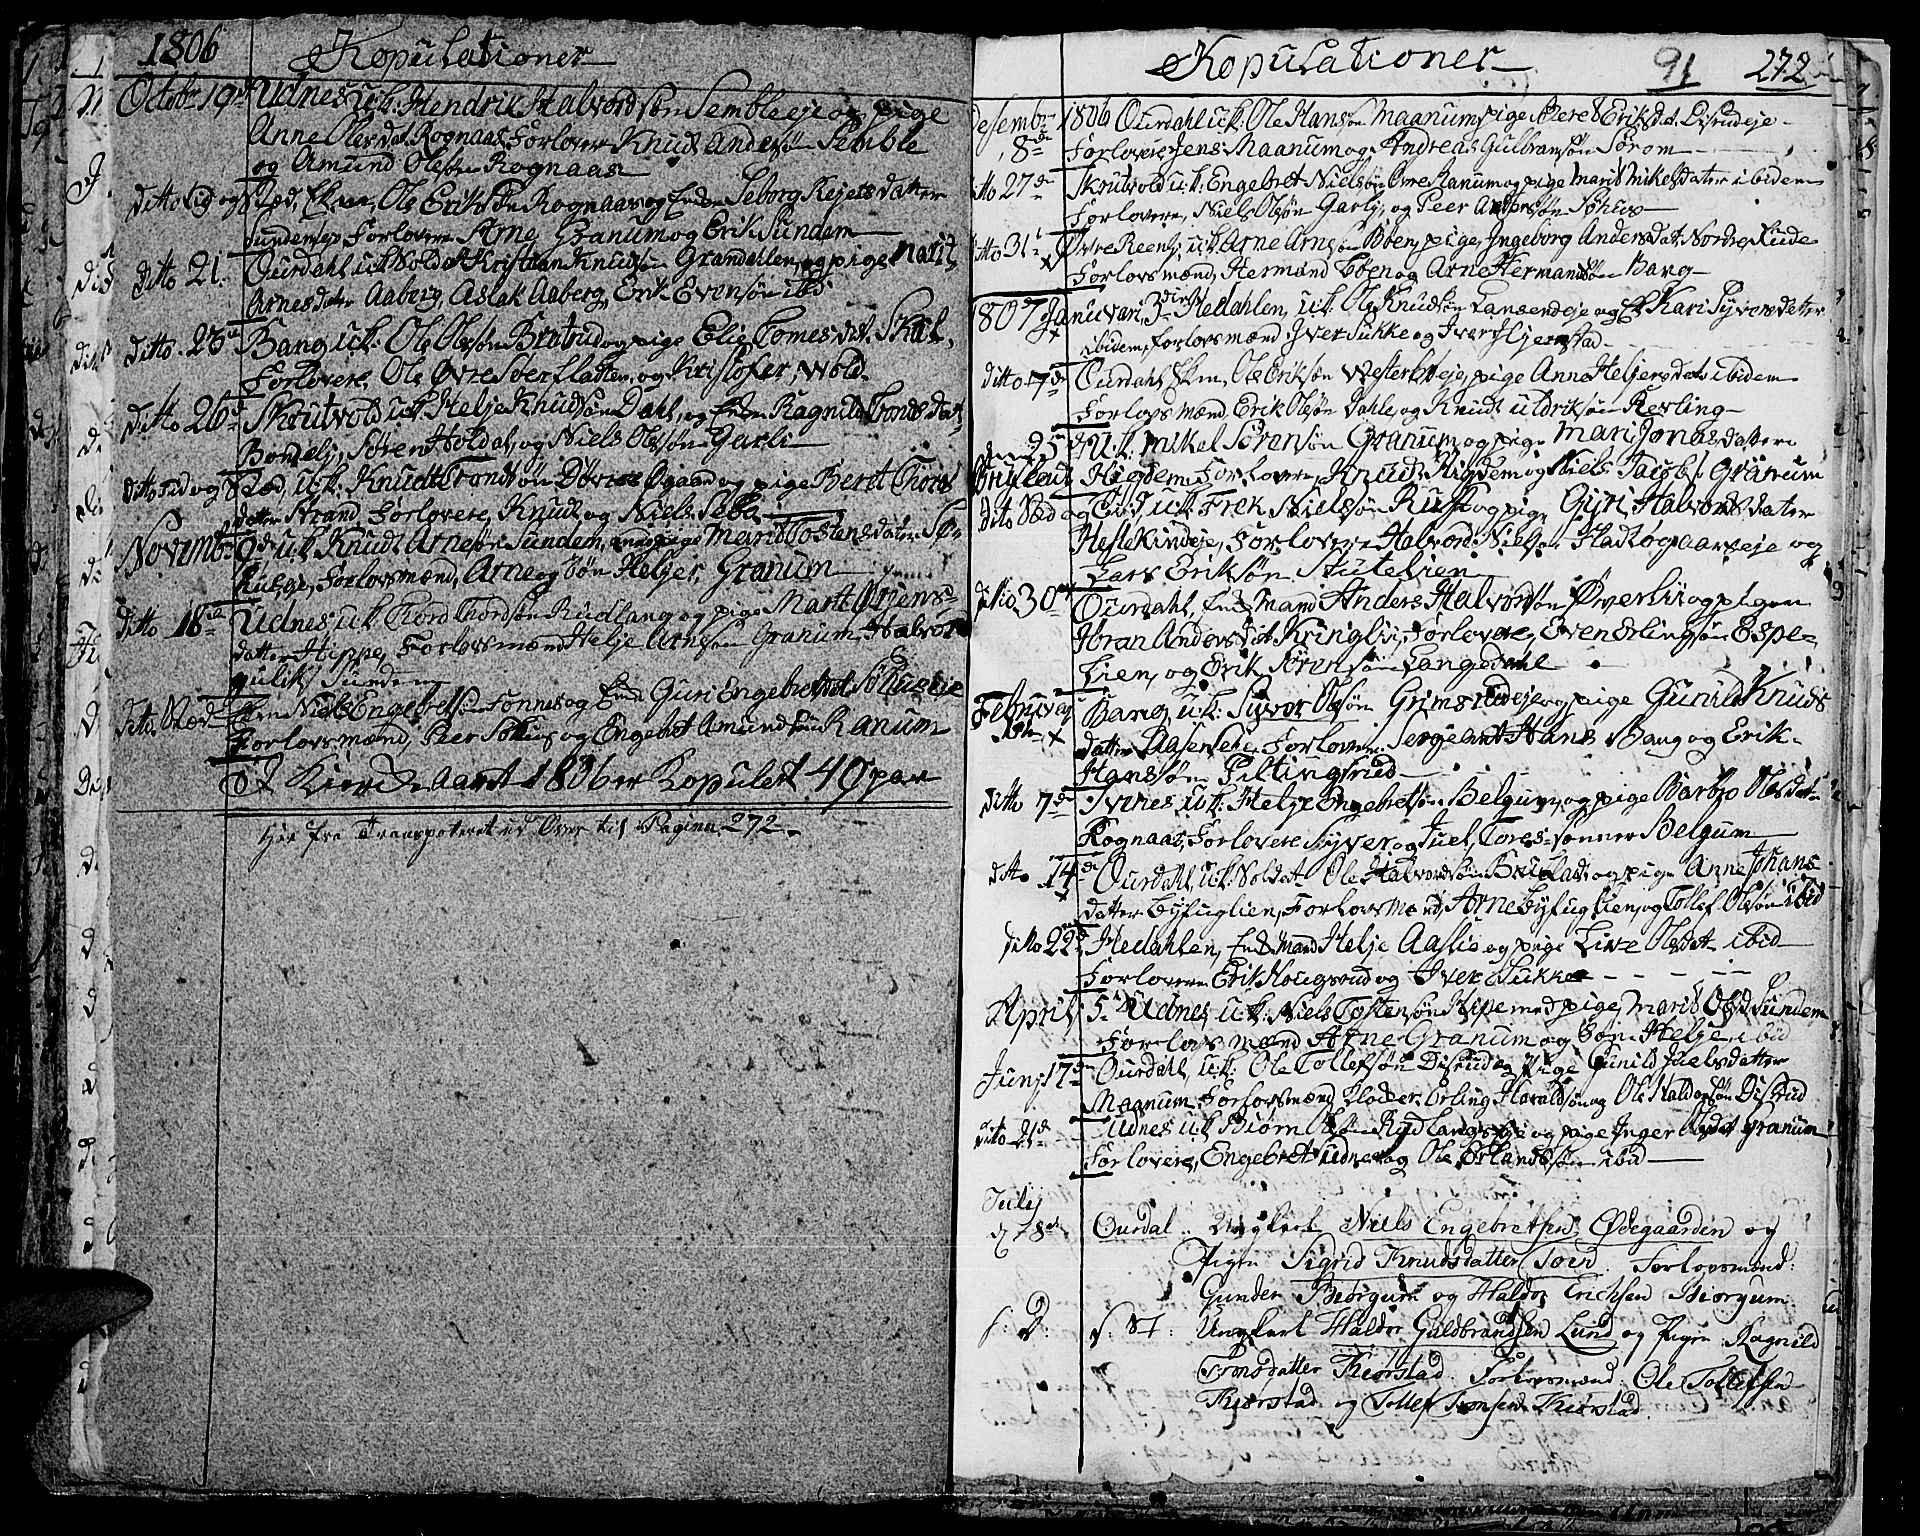 1806 Kopulationer
Octobr 19de Udnes u:k: Hendrik Halvordsøn Sembleeje og pige
Anne Olesdat. Rognaas Forlover Knud Andersøn Semble
og Amund Olesøn Rognaas
ditto og Stæd, Ekm. Ole Eriksøn Rognaas og Enke Seborg Kejelsdatter
Sundemeje Forlovere Arne Granum og Erik Sundem
ditto 21. Ourdahl u:k Soldat Kristian Knudsøn Grandalen, og pige Marit
Arnesdater Aaberg, Aslak Aaberg, Erik Evensøn ibid
ditto. 23de Bang u:k: Ole Olesøn Bratrud og pige Elie Tomesdat. Skal
Forlovere, Ole Øvre Sverfladten, og Kristofer, Wold
ditto 26de Skrutvold u:k Helje Knudsøn Dahl, og Enke Ragnild Tronds dat
Bordelj, Søren Holdal, og Niels Olesøn Garli
ditto tid og Stæd, u:k: Knudt Trondsøn Øigaard og pige Berit Thores
datter Strand Forlovere, Knud og Niels Sebo
Novemb. u:k Knudt Arnesøn Sundem, pige Marit Tostensdater
Forlovsmænd, Arne og Søn Heljer, Granum
ditto 16de Udnes u:k Tord Thordsøn Rudlang og pige Marit Ørjens-
datter Hippe, Forlovsmænd Helje Arnesøn Granum, Halvor
gulik Sundem
dito. Stæd Ekm Niels Engebretsøn Fønnes og Enke Guri Engebretsdat Søhuseje
Forlovsmænd, Peer Søhus og Engebret Amundsøn Ranum
I Kierke aaret 1806 er Kopulert 49 par
Her fra Transporteret ud Over til Pagina 272.
Kopulationer 91 272
Desembr 1806 Ourdahl u:k: Ole Hansøn Maanum, pige Beret Eriksdat. Disrudeje
8de Forlovere Jens Maanum og Andreas Gulbransøn Sørom
ditto 27de Skrutvold u:k: Engebret Nielsøn Øvre Ranum og pige Marit Mikelsdater ibidem
Forlovere, Niels Olsøn Garlj, og Peer Andersøn Søhus
ditto 31te Øvre Reenj, u:k Arne Arnesøn Bøen, pige, Ingeborg Andersdat. Nordre Rude
Forlovsmænd, Hermand Bøen og Arne Hermandsøn Bang
1807 Januvari, 3die Hedahlen, u:k: Ole Knudsøn Lansendeje og Ek Kari Syversdatter
ibidem, Forlovsmænd Iver Sukke og Iver Hjernstad
ditto 7de Ourdahl Ekm, Ole Eriksøn Westerbyeje, pige Anne Heljersdat ibidem
Forlovsmænd, Erik Olsøn Dahle, og Knudt Uldriksøn Resling
25de u:k: Mikel Sørensøn Granum og pige Mari Jonasdatter
Bruflaat Hiedem Forlovere, Knud Hiedem og Niels Jacobs: Granum
dito Stæd og Tid u:k Frek Nielsøn Rust og pig: Gyri Halvordsdater
Heslekindeje, Forlovere Halvord Niels: Hadtogaarseje og
Lars Eriksøn Stutelien
ditto 30de Ourdahl, Enkemand Anders Halvordsøn Øverlii og pigen
Joran Andersdat Kringlii, Forlovere, Even Erlingsøn Espe-
lien, og Erik Sørensøn Langedahl
Februvarj Bang, u:k: Syvor Olsøn Grimsrudeje og pige Gunild Knuds
datter Aasenseie, Forlovere Sergeant Hans Bang og Erik
Hanssøn Piltingsrud
ditto 7de Svenes, u:k: Helje Engebretsøn Belgum, og pige Barbro Olesdat
Rognaas, Forlovere Syver og Juel, Tores-sønner Belgum
ditto 14de Ourdahl, u:k: Soldat Ole Halvordsøn Bruflad og pige Anne Johans-
datter Byfuglien, Forlovsmænd, Arne Byfuglien, og Tollef Olesøn ibid
ditto 22de Hedahlen, Enkemand Helje Aaslie og pige Live Olesdat ibid
Forlovere Erik Hougsrud og Iver Sukke
April 5te Udnes u:k: Niels Tostensøn Hipe med pige Marit Olsd Sundem
Forlovsmænd Arne Granum og Søn Helje, ibid
Junj 17de Ourdahl, u:k: Ole Tollefsøn Disrud og pige Gunild Juelsdatter
Maanum Forlovsmænd Klokker Erling Haraldsøn og Ole Haldorsøn Disrud
dito 21de Udnes u:k Biørn Olsøn Rudlangseje og pige Inger Olsdat Granum
Forlovere, Engebret Udnes og Ole Erlandsøn ibid
Julij
d 8de Ourdal. Ungkarl Niels Engebretsen Ødegaarden og
Pigen Sigrid Knudsdatter Toen. Forlovsmænd:
Gunder Biørgum og Haldor Erichsen Biørgum.
s: D: s: St: Ungkarl Haldor Guldbrandsen Lund og Pigen Ragnild
Tronsdatter Thiørstad. Forlovsmænd: Ole Tollefsen
Thiørstad og Tollef Tronsen Thiørstad.